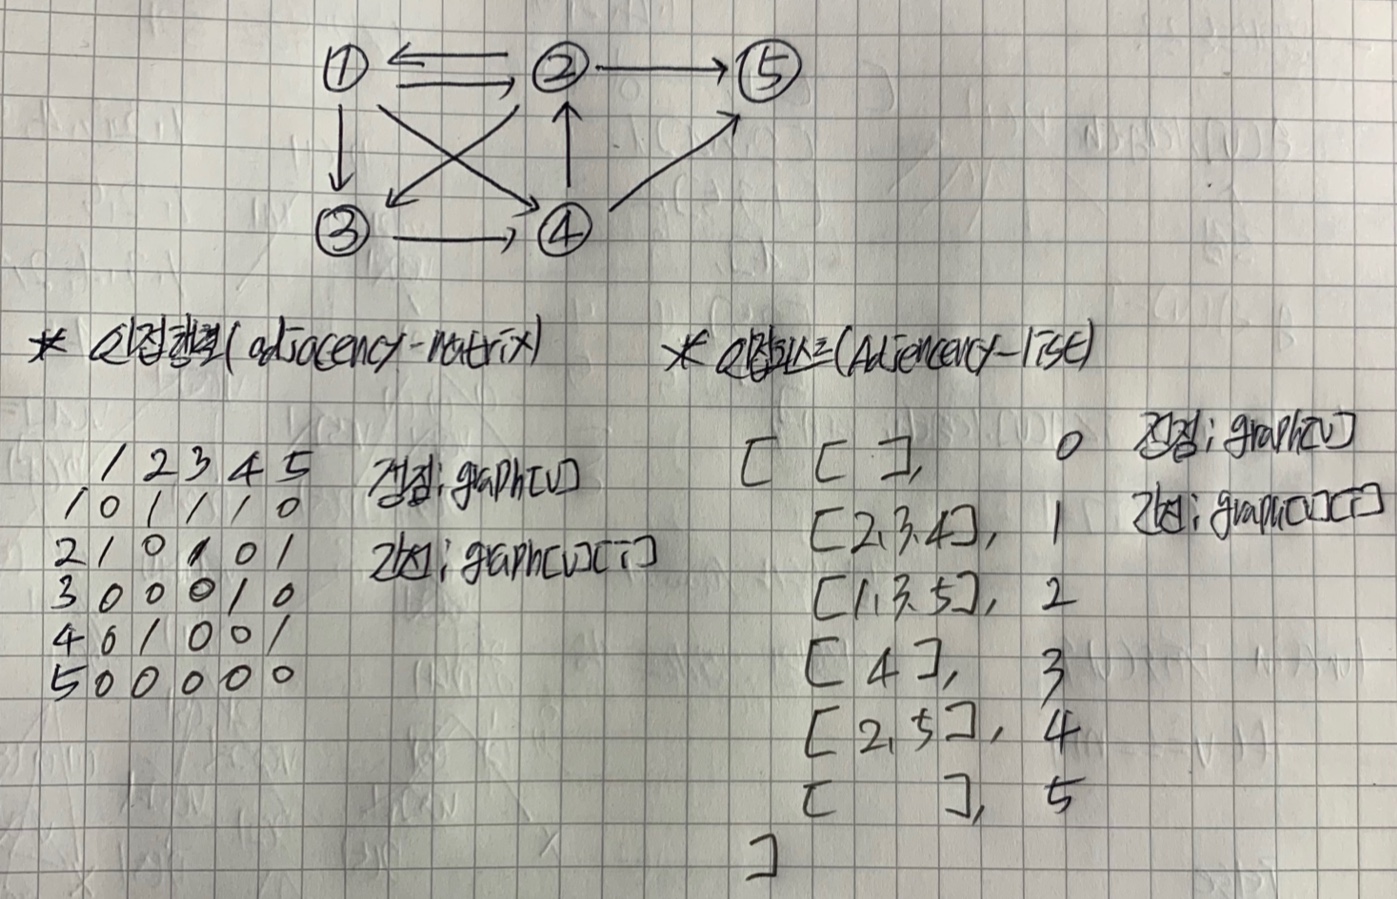 ① ② ⑤
③ ④
* 인접행렬(adjacency-matrix)
1 2 3 4 5
1 0 1 1 1 0
2 1 0 1 0 1
3 0 0 0 1 0
4 0 1 0 0 1
5 0 0 0 0 0
정점; graph[v]
간선; graph[v][i]
* 인접리스트(Adjencency-list)
[ [ ], 0
[2,3,4], 1
[1,3,5], 2
[ 4 ], 3
[ 2, 5 ], 4
[ ], 5
]
정점; graph[v]
간선; graph[v][i]